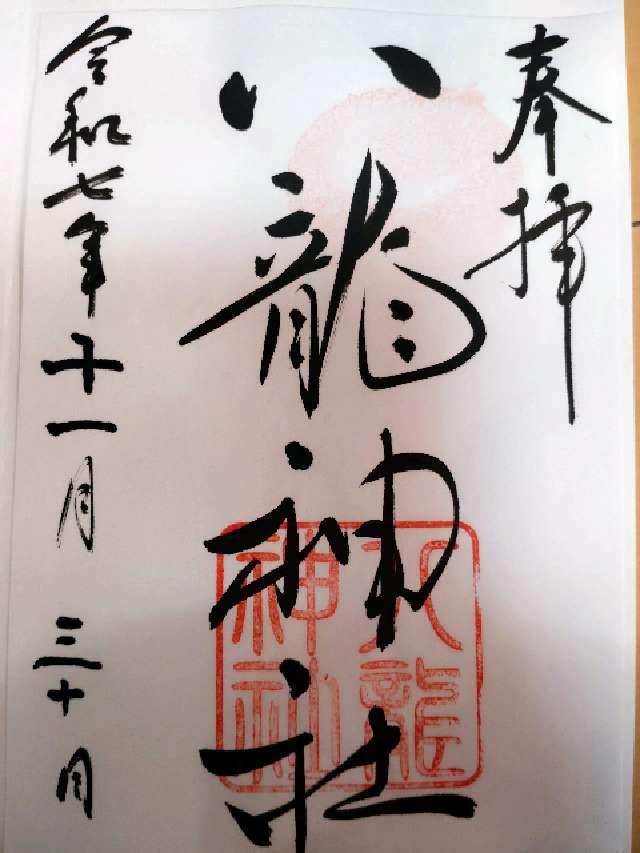 奉拝
八龍神社
八龍
神社
令和七年十一月三十日